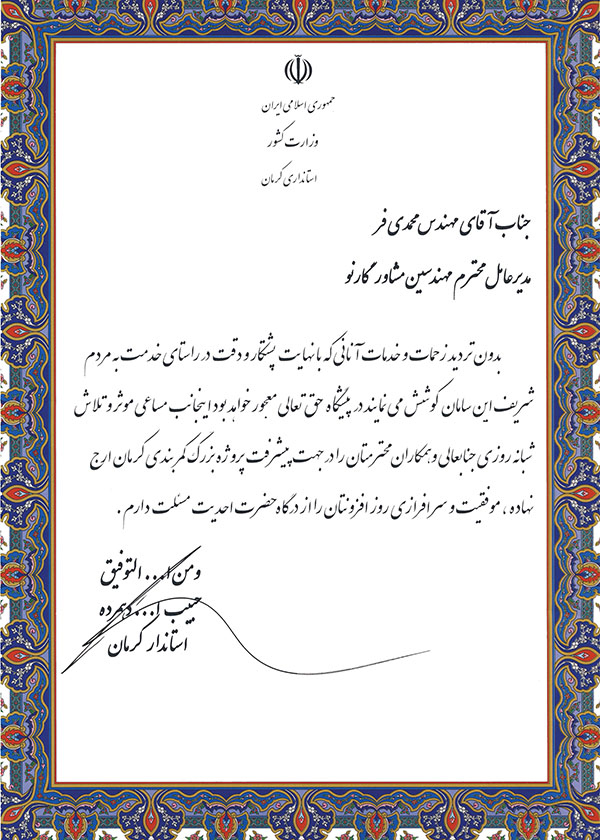 جمهوری اسلامی ایران
وزارت کشور
استانداری کرمان
جناب آقای مهندس محمدی فر
مدیرعامل محترم مهندسین مشاور گارنو
بدون تردید زحمات و خدمات آنانی که با نهایت پشتکار و دقت در راستای خدمت به مردم
شریف این سامان کوشش می نمایند در پیشگاه حق تعالی معجور خواهد بود اینجانب مساعی موثر و تلاش
شبانه روزی جنابعالی و همکاران محترمتان را در جهت پیشرفت پروژه بزرگ کمربندی کرمان ارج
نهاده ، موفقیت و سرافرازی روز افزونتان را از درگاه حضرت احدیت مسئلت دارم .
ومن ا... التوفیق
حبیب ا... دهمرده
استاندار کرمان